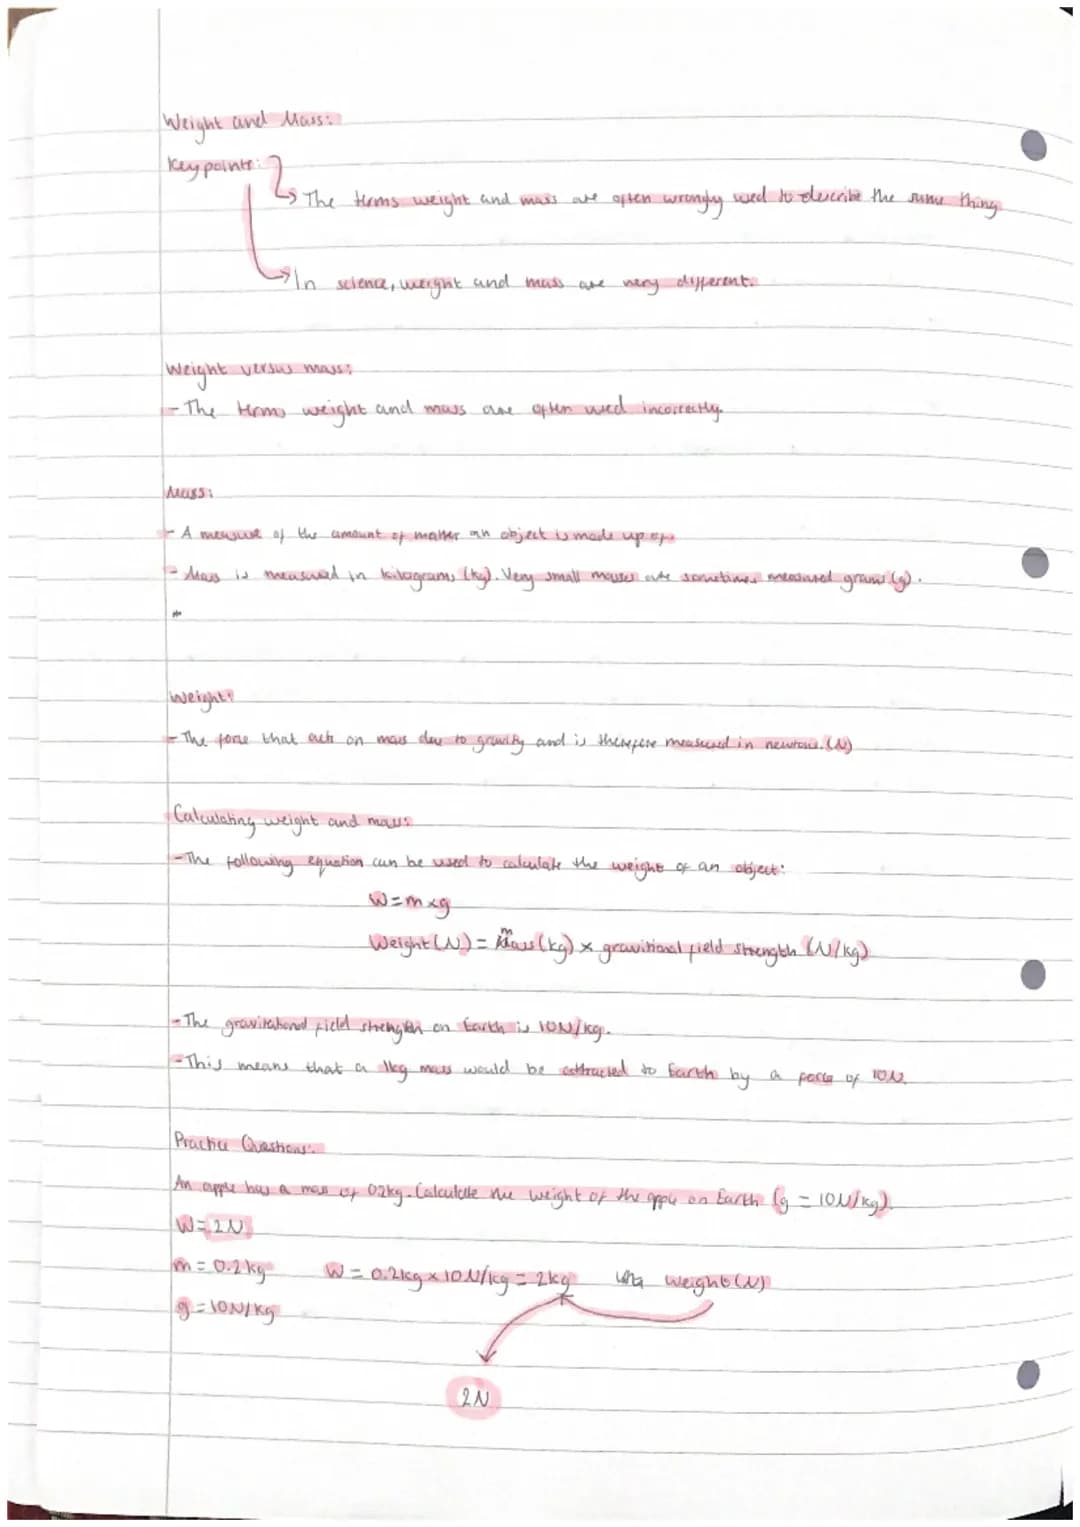 Weight and Mass:
Key points:
The terms weight and mass are often wrongly used to describe the same thing
In science, weight and mass are very different.
Weight versus mass:
- The terms weight and mass are often used incorrectly.
Mass:
- A measure of the amount of matter an object is made up of.
- Mass is measured in kilograms (kg). Very small masses are sometimes measured grams (g).
Weight:
- The force that acts on mass due to gravity and is therefore measured in newtons. (N)
Calculating weight and mass:
- The following equation can be used to calculate the weight of an object:
W = m x g
Weight (N) = mass (kg) x gravitional field strength (N/kg)
- The gravitational field strength on Earth is 10N/kg.
- This means that a 1kg mass would be attracted to Earth by a force of 10N.
Practice Questions:
An apple has a mass of 0.2kg. Calculate the weight of the apple on Earth (g = 10N/kg).
W = 2N
m = 0.2kg W = 0.2kg x 10N/kg = 2kg weight (N)
g = 10N/kg
2N